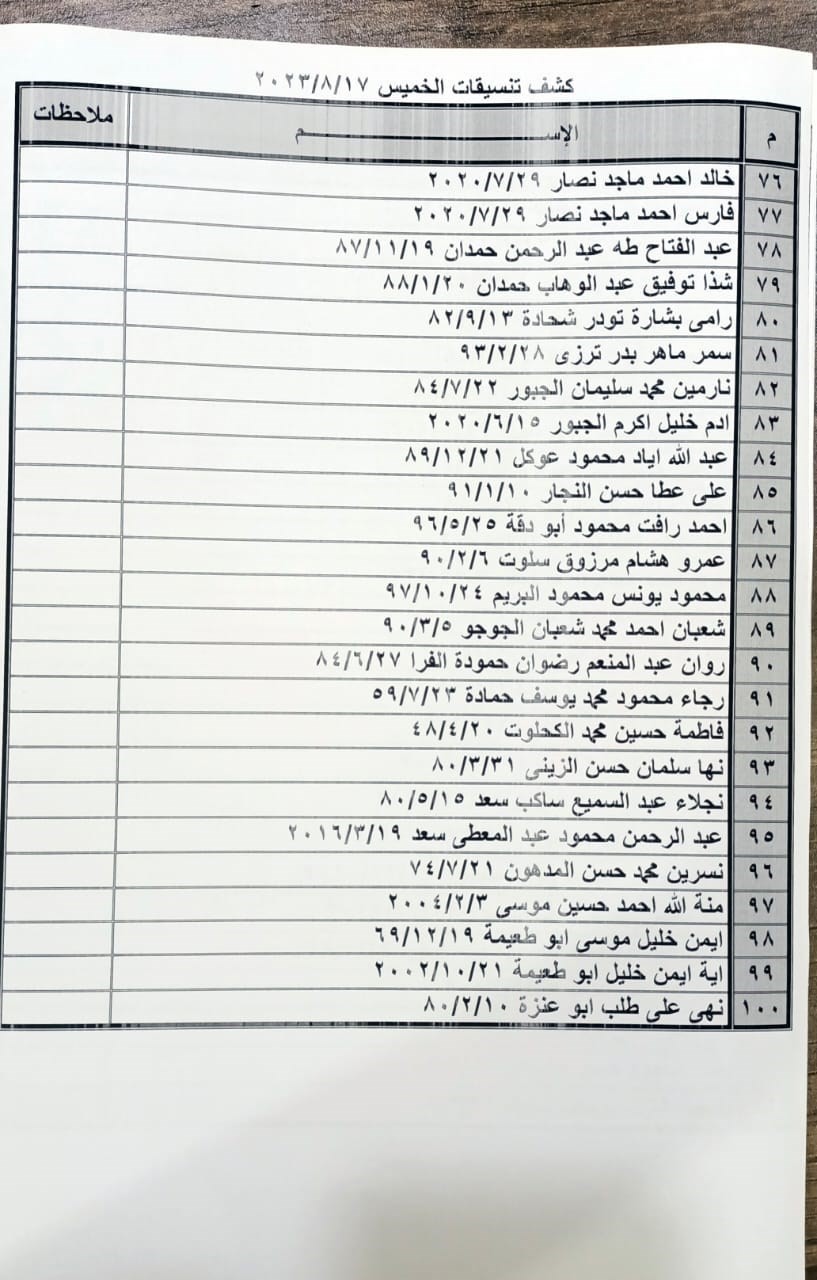 كشف تنسيقات الخميس ٢٠٢٣/٨/١٧
م الإســــــم ملاحظات
٧٦ خالد احمد ماجد نصار ٢٠٢٠/٧/٢٩
٧٧ فارس احمد ماجد نصار ٢٠٢٠/٧/٢٩
٧٨ عبد الفتاح طه عبد الرحمن حمدان ٨٧/١١/١٩
٧٩ شذا توفيق عبد الوهاب حمدان ٨٨/١/٢٠
٨٠ رامى بشارة تودر شحادة ٨٢/٩/١٣
٨١ سمر ماهر بدر ترزى ٩٣/٢/٢٨
٨٢ نارمين محمد سليمان الجبور ٨٤/٧/٢٢
٨٣ ادم خليل اكرم الجبور ٢٠٢٠/٦/١٥
٨٤ عبد الله اياد محمود عوكل ٨٩/١٢/٢١
٨٥ على عطا حسن النجار ٩١/١/١٠
٨٦ احمد رافت محمود أبو دقة ٩٦/٥/٢٥
٨٧ عمرو هشام مرزوق سلوت ٩٠/٢/٦
٨٨ محمود يونس محمود البريم ٩٧/١٠/٢٤
٨٩ شعبان احمد محمد شعبان الجوجو ٩٠/٣/٥
٩٠ روان عبد المنعم رضوان حمودة الفرا ٨٤/٦/٢٧
٩١ رجاء محمود محمد يوسف حمادة ٥٩/٧/٢٣
٩٢ فاطمة حسين محمد الكحلوت ٤٨/٤/٢٠
٩٣ نها سلمان حسن الزينى ٨٠/٣/٣١
٩٤ نجلاء عبد السميع ساكب سعد ٨٠/٥/١٥
٩٥ عبد الرحمن محمود عبد المعطى سعد ٢٠١٦/٣/١٩
٩٦ نسرين محمد حسن المدهون ٧٤/٧/٢١
٩٧ منة الله احمد حسين موسى ٢٠٠٤/٢/٣
٩٨ ايمن خليل موسى ابو طعيمة ٦٩/١٢/١٩
٩٩ اية ايمن خليل ابو طعيمة ٢٠٠٢/١٠/٢١
١٠٠ نهى على طلب ابو عنزة ٨٠/٢/١٠